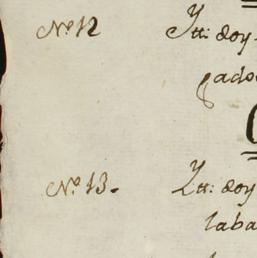 Nº 12 Ytt: doy
pado
Nº 13. Ytt: doy
laba